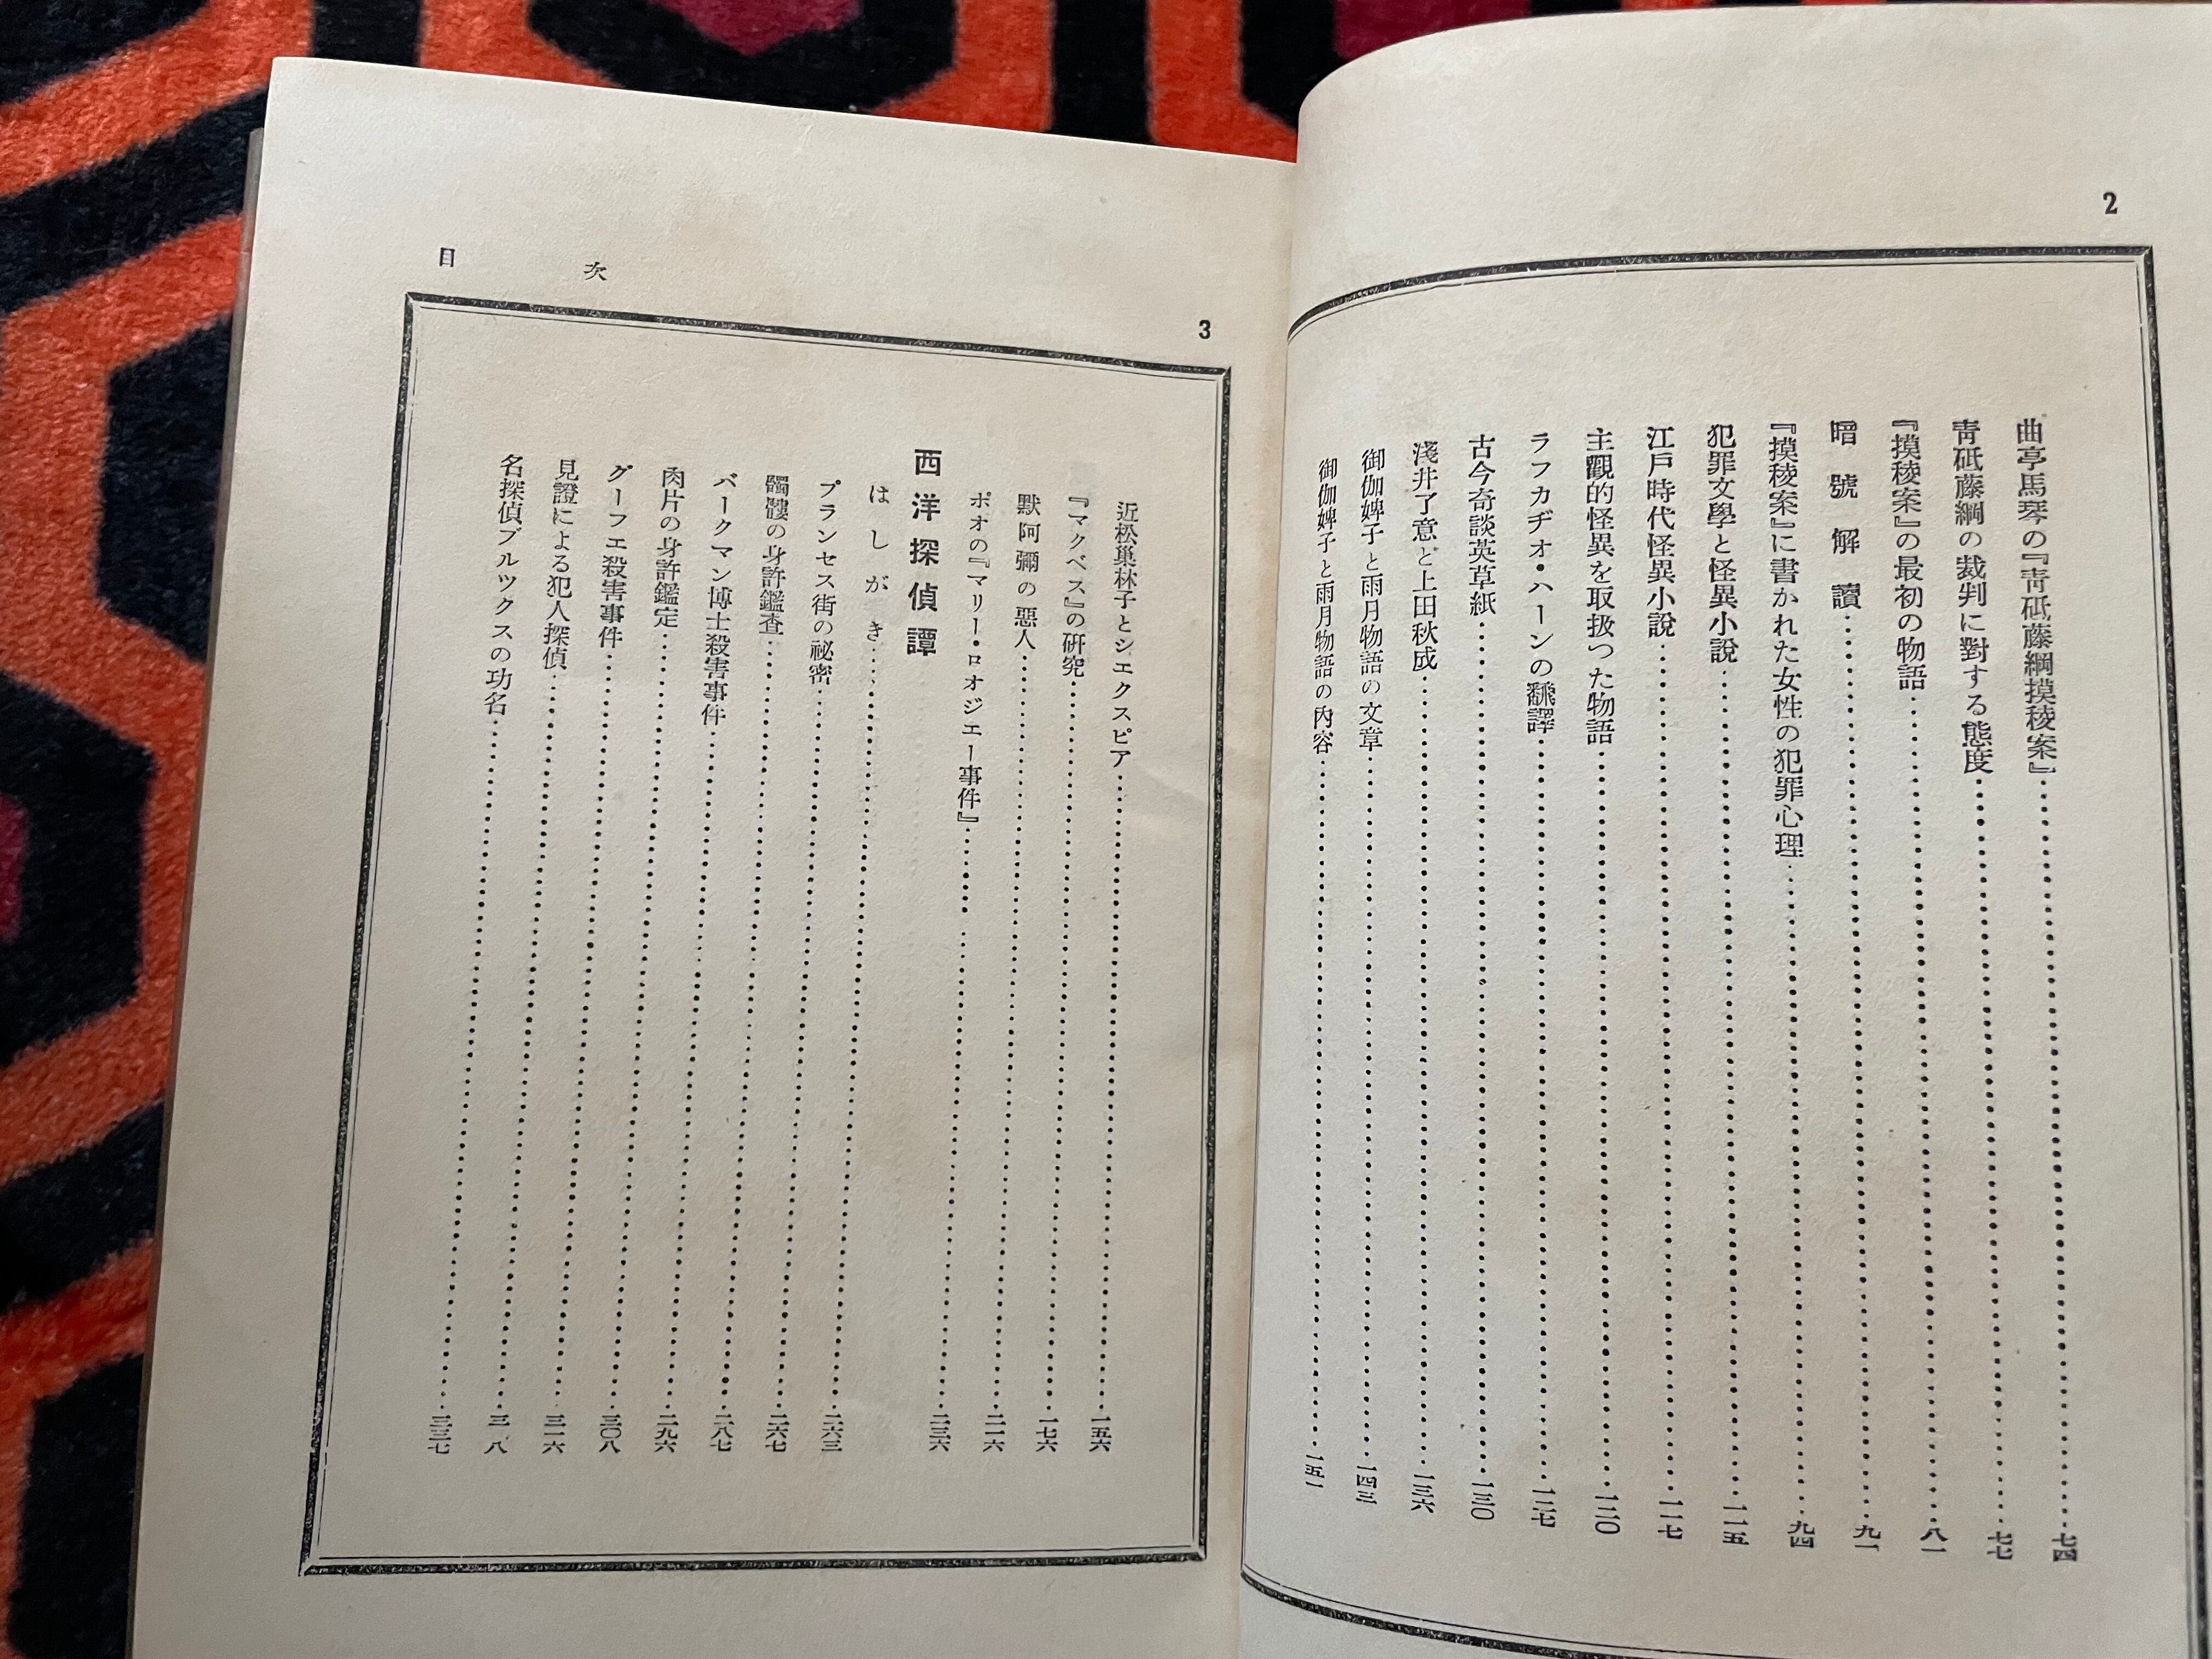 2
曲亭馬琴の『靑砥藤綱摸稜案』……七四
靑砥藤綱の裁判に對する態度……七七
『摸稜案』の最初の物語……八一
暗號解讀……九一
『摸稜案』に書かれた女性の犯罪心理……九四
犯罪文學と怪異小說……一一五
江戶時代怪異小說……一一七
主觀的怪異を取扱つた物語……一二〇
ラフカヂオ・ハーンの飜譯……一二七
古今奇談英草紙……一三〇
淺井了意と上田秋成……一三六
御伽婢子と雨月物語の文章……一四三
御伽婢子と雨月物語の內容……一五一
目次
3
近松巢林子とシエクスピア……一五六
『マクベス』の硏究……一七六
默阿彌の惡人……二一六
ポオの『マリー・ロオジエー事件』……二三六
西洋探偵譚
はしがき
プランセス街の祕密……二六三
髑髏の身許鑑査……二六七
バークマン博士殺害事件……二八七
肉片の身許鑑定……二九六
グーフエ殺害事件……三〇八
見證による犯人探偵……三一六
名探偵ブルツクスの功名
三三七